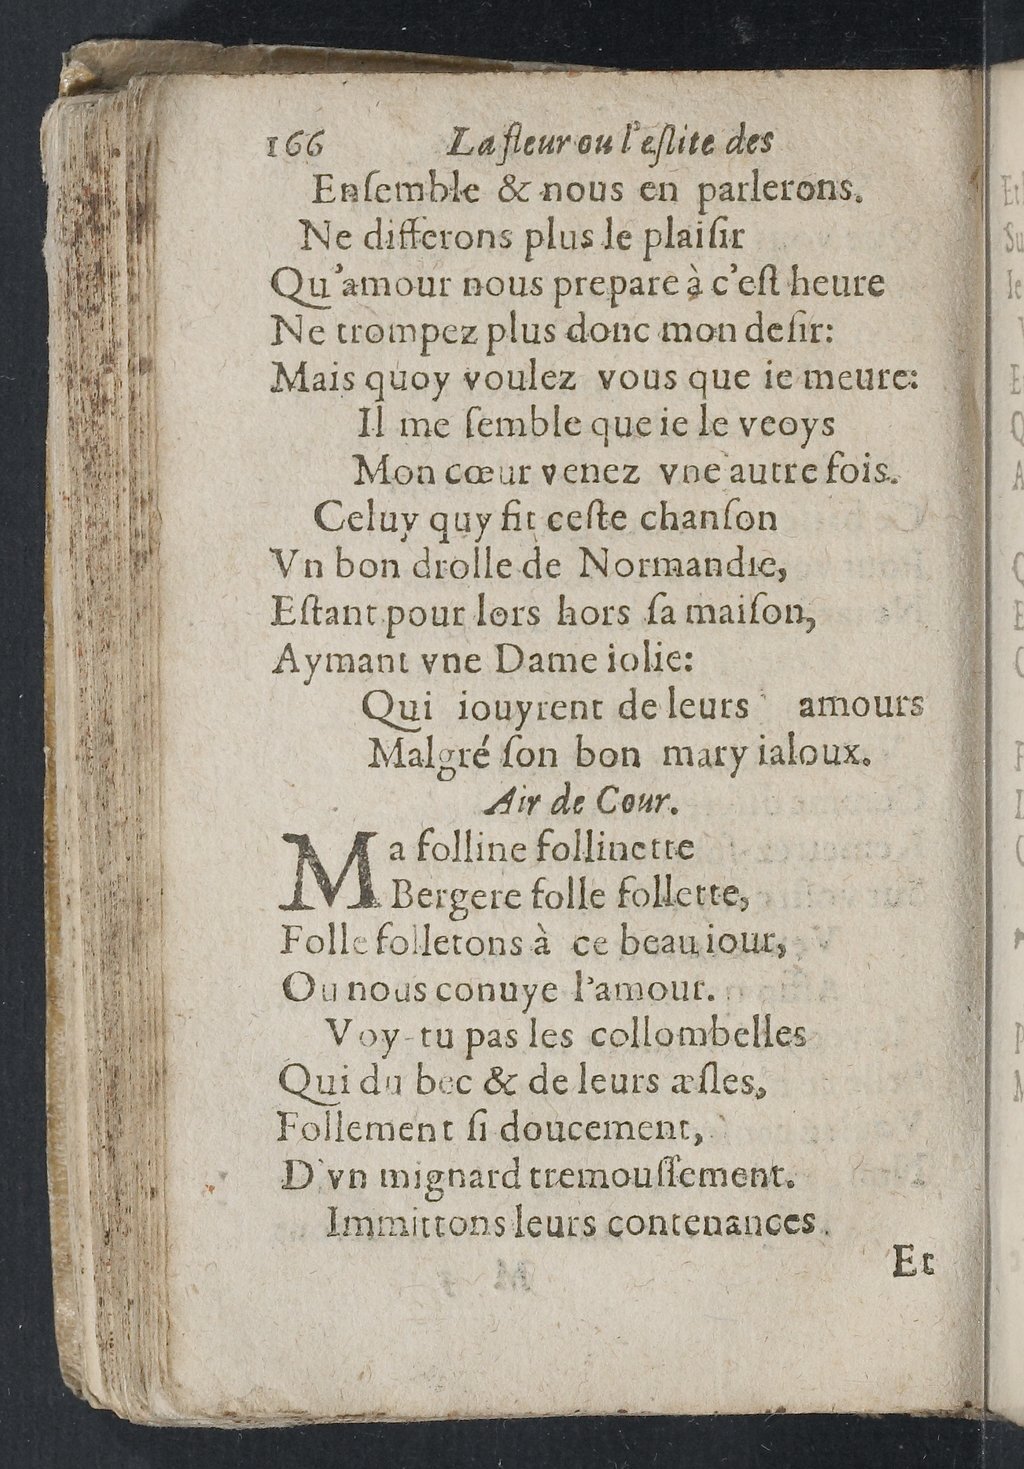 166 La fleur ou l'eſlite des
Enſemble & nous en parlerons.
Ne differons plus le plaiſir
Qu'amour nous prepare à c'eſt heure
Ne trompez plus donc mon deſir:
Mais quoy voulez vous que ie meure:
Il me ſemble que ie le veoys
Mon cœur venez vne autre fois.
Celuy quy fit ceſte chanſon
Vn bon drolle de Normandie,
Eſtant pour lors hors ſa maiſon,
Aymant vne Dame iolie:
Qui iouyrent de leurs amours
Malgré ſon bon mary ialoux.
Air de Cour.
Ma folline follinette
Bergere folle follette,
Folle folletons à ce beau iour,
Ou nous conuye l'amour.
Voy-tu pas les collombelles
Qui du bec & de leurs æſles,
Follement ſi doucement,
D'vn mignard tremouſſement.
Immittons leurs contenances.
Et